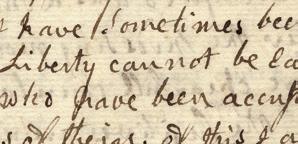 have sometimes bee
Liberty cannot be ea
who have been accus
of this